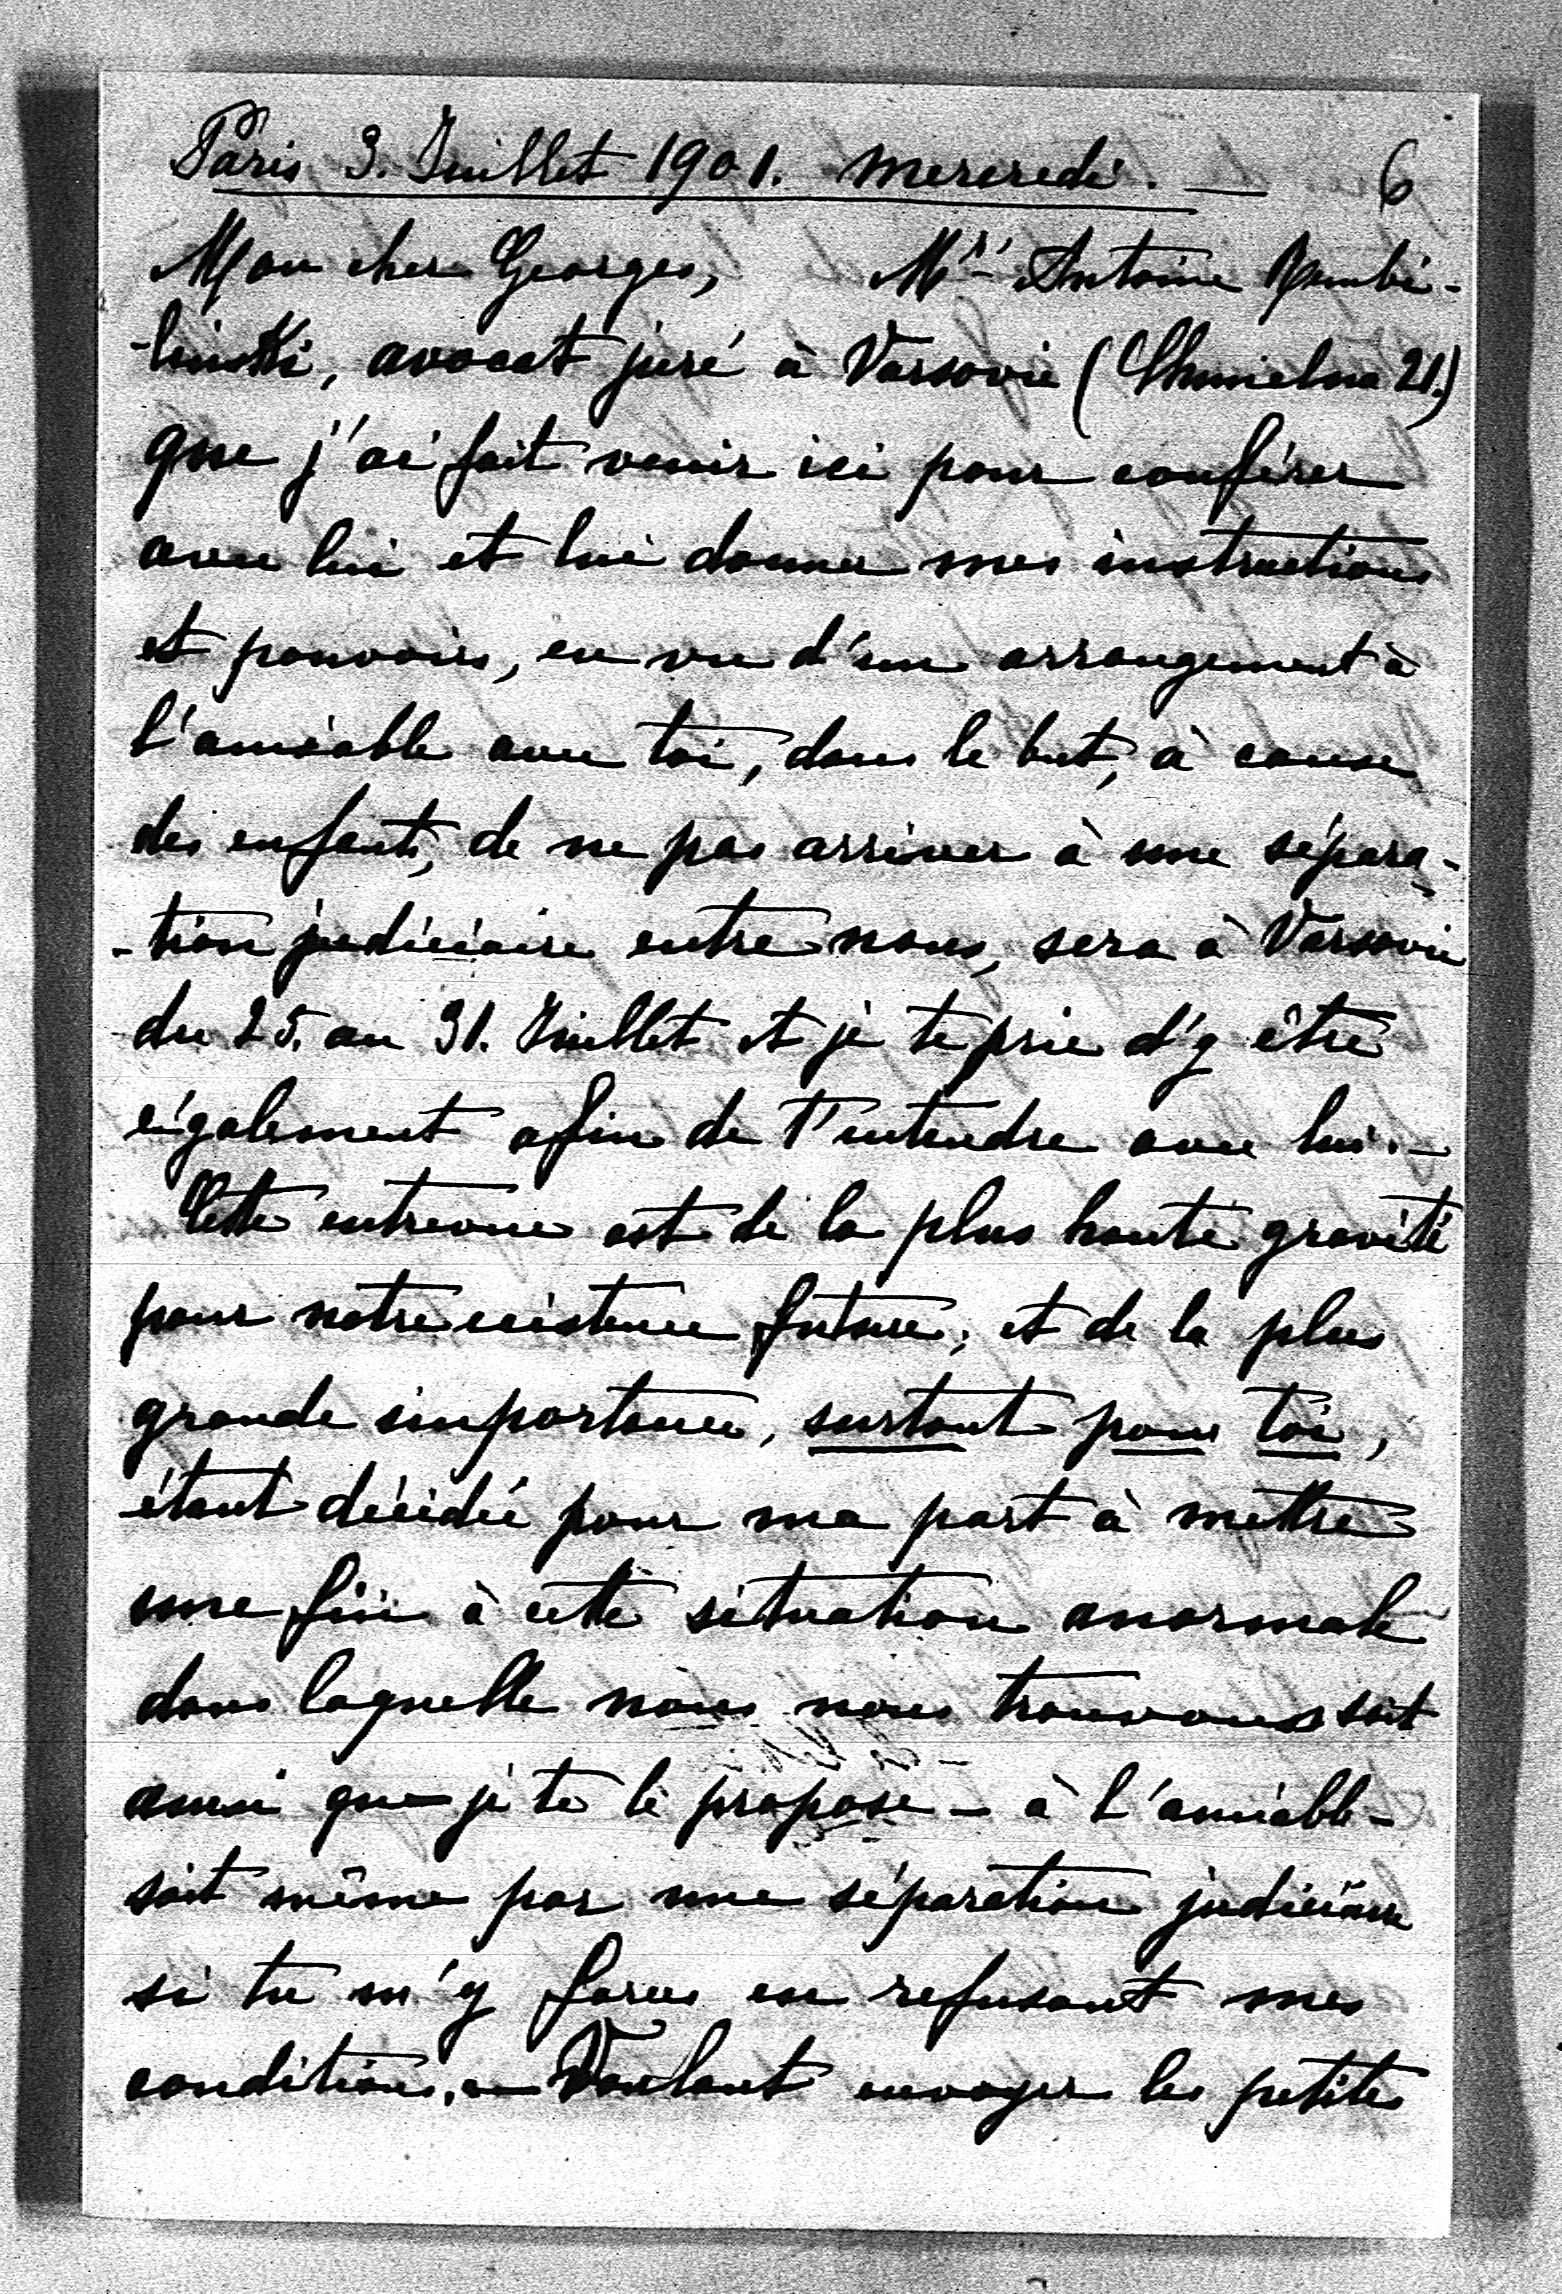 Paris 3. Juillet 1901. Mercredi. — 6
Mon cher Georges, Mr. Antoine Rembi-
-linski, avocat juré à Varsovie (Chmielna 21.)
que j'ai fait venir ici pour conférer
avec lui et lui donner mes instructions
et pouvoirs, en vue d'un arrangement à
l'amiable avec toi, dans le but, à cause
des enfants, de ne pas arriver à une sépara-
-tion judiciaire entre nous, sera à Varsovie
du 25. au 31. Juillet et je te prie d'y être
également afin de t'entendre avec lui. —
Cette entrevue est de la plus haute gravité
pour notre existence future, et de la plus
grande importance, surtout pour toi,
étant décidée pour ma part à mettre
une fin à cette situation anormale
dans laquelle nous nous trouvons soit
ainsi que je te le propose — à l'amiable —
soit même par une séparation judiciaire
si tu m'y forces en refusant mes
conditions. — Voulant envoyer les petites